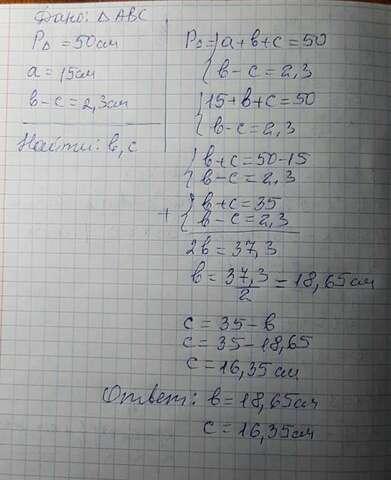 Дано: △ABC
P△ = 50см
a = 15см
в - c = 2,3см
Найти: в, c
P△ = {a + в + c = 50
в - c = 2,3
{15 + в + c = 50
в - c = 2,3
{в + c = 50 - 15
в - c = 2,3
+ {в + c = 35
в - c = 2,3
2в = 37,3
в = 37,3/2 = 18,65см
c = 35 - в
c = 35 - 18,65
c = 16,35 см
Ответ: в = 18,65см
c = 16,35см